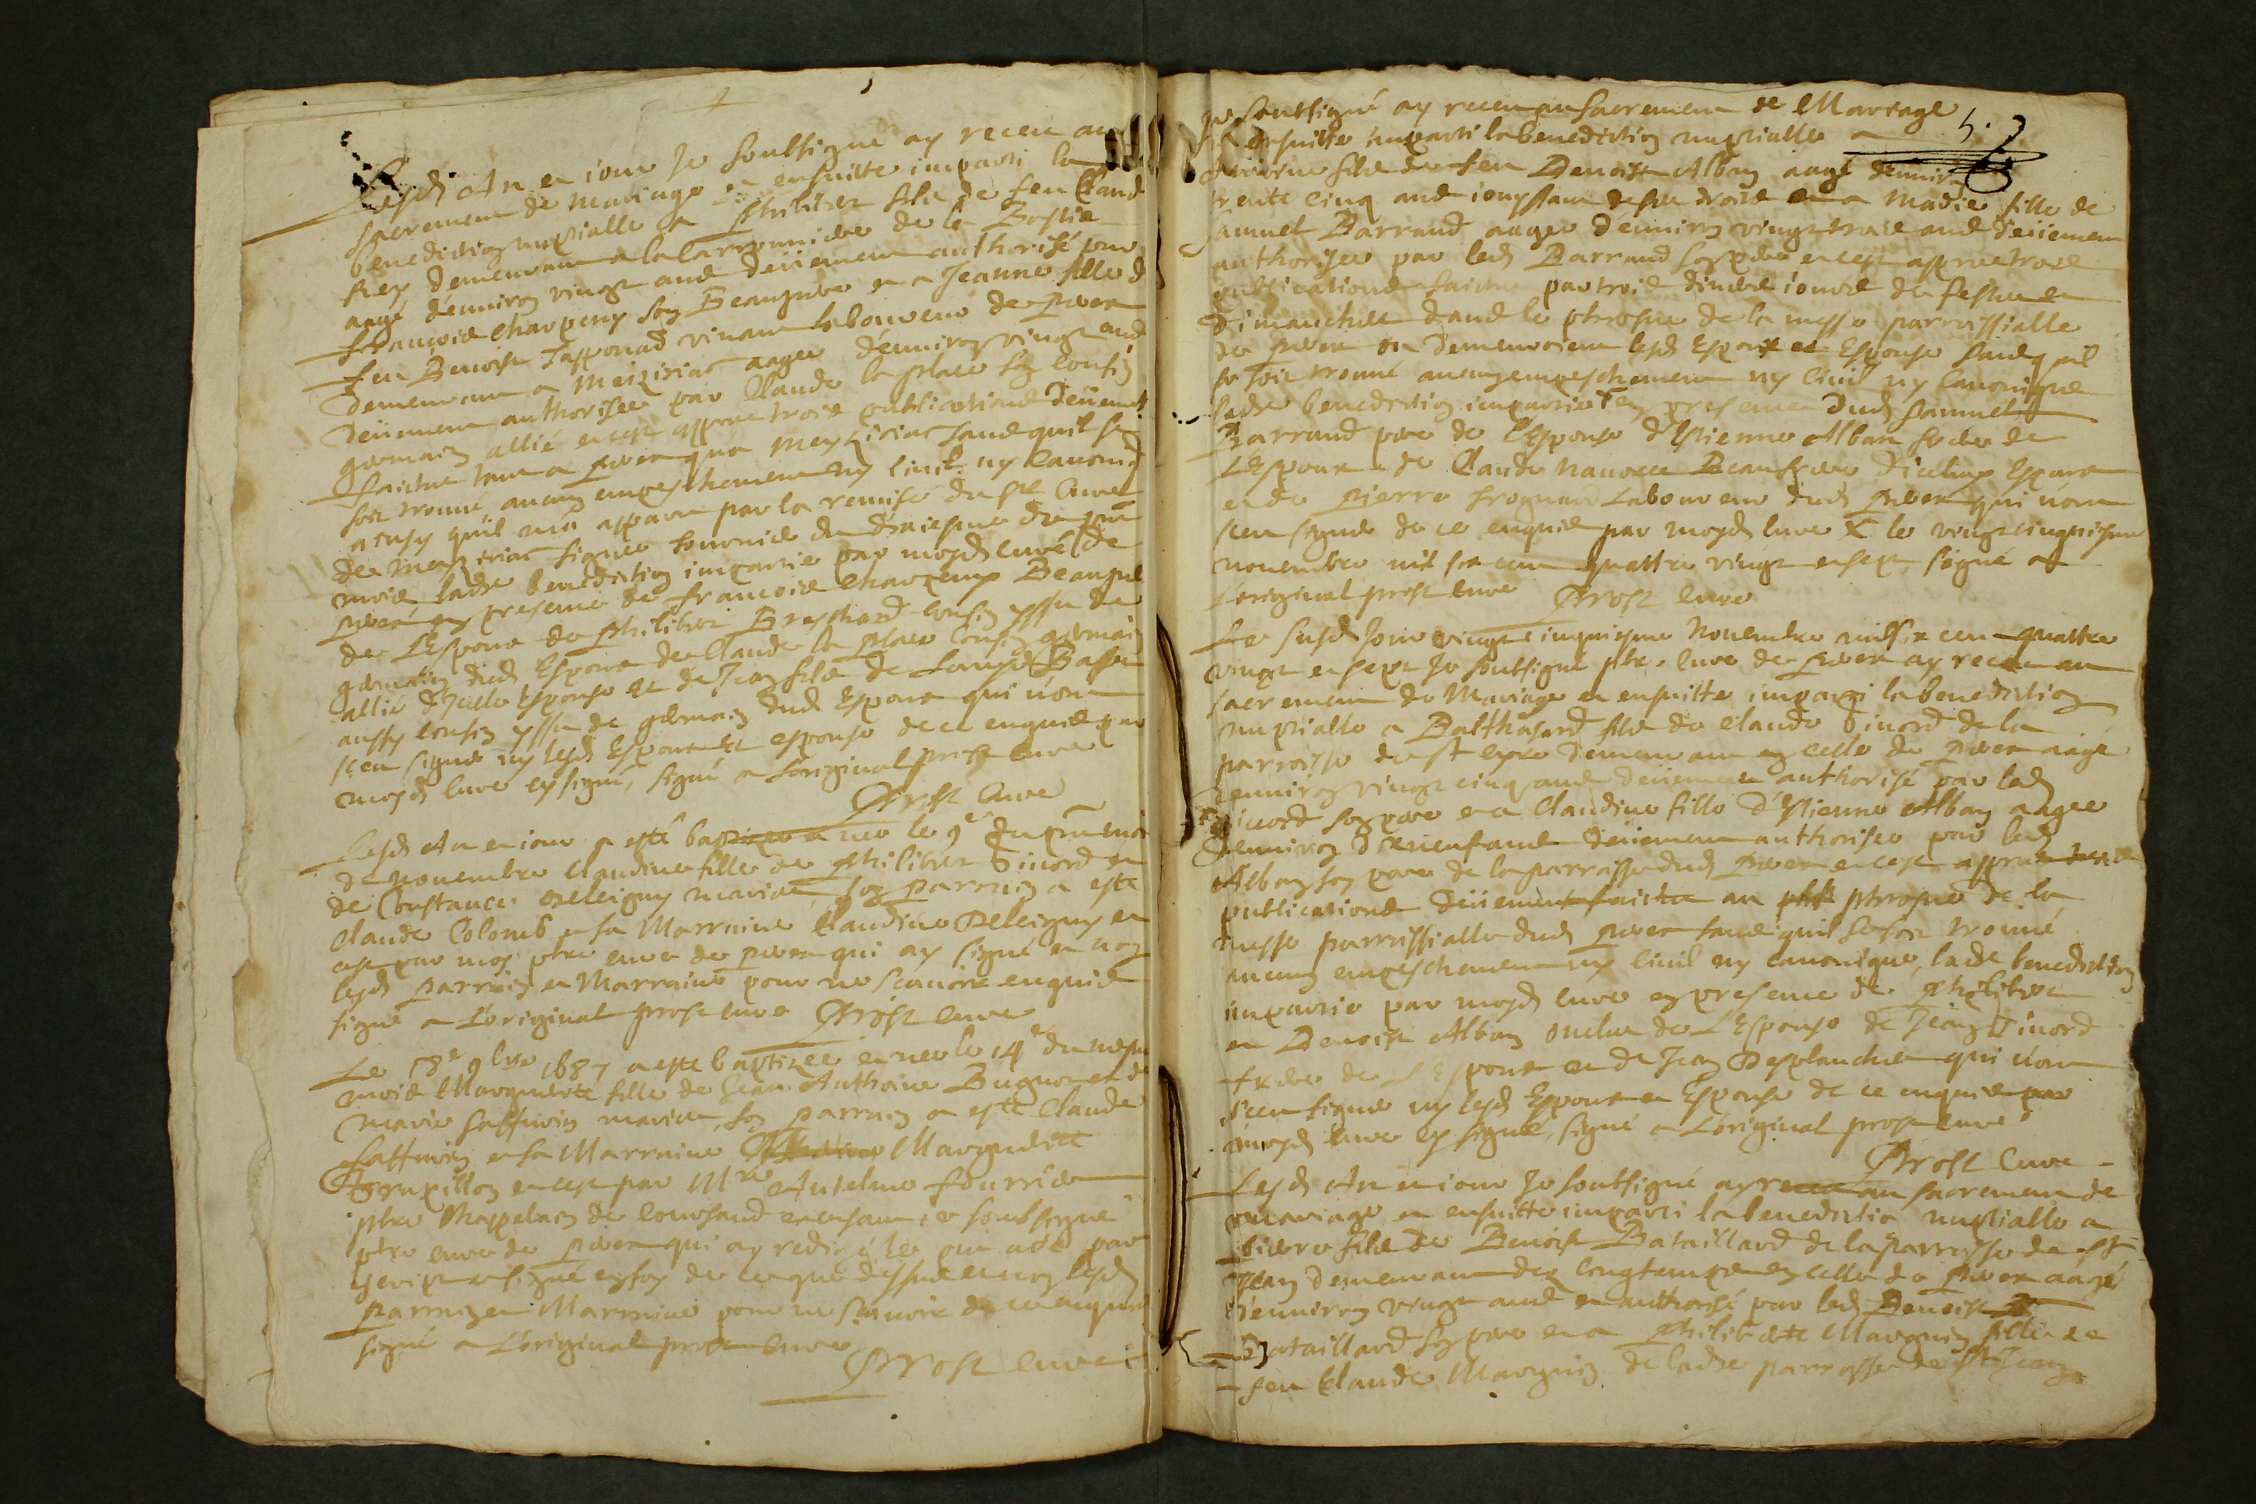 Lesd An et iour Je soubsigné ay receu au
sacrement de mariage et ensuitte imparti la
benediction nuptialle a philibert fils de feu Claude
Rey demeurant a la de la Bastie
aagé denniron vingt ans deüement authorisé par
françois Charpeny son Beaupere et a Jeanne fille de
feu Benoist vivant laboureur de peron
demeurant a Meiziriat aagee denniron vingt ans
deüement authorisee par Claude la place son cousin
germain allié et cest appres trois publications deüement
faictes tant a peron qua Meyziriat sans quil se
soit trouué aucun empeschement ny ciuil ny canoniq
ainsy quil ma apparu par la remise du sr Curé
de Meyziriat signee du present
mois ladte benediction impartie par moyd curé de
peron en presence de francois Charpeny Beaupere
de L'Espoux de philibert Breschard cousin yssu de
germain dud Espoux de Claude la place cousin germain
allié d'Icelle Espouse et de Jean fils de
aussy cousin yssu de germain dud Espoux qui n'ont
sceu signer ny lesd Espoux et espouse de ce enquis par
moyd curé sy signé, signé a L'original prost curé
Prost Curé
Lesd An et iour a esté baptizee et nee le 9e du pnt mois
de nouembre Claudine fille de philibert Sinord et
de Constance Deleigny mariés, son parrain a esté
Claude Colomb et sa Marraine Claudine Deleigny et
cest par moy ptre curé de peron qui ay signé et non
lesd parrain et Marraine pour ne scauoir enquis
signé a L'original prost curé Prost curé
Le 18e 9bre 1687 a esté baptizée et nee le 14e du mesme
mois Marguerite fille de Jean Anthoine Bugnot et de
Marie mariés, son parrain a esté Claude
et sa Marraine Margueritte
et cest par Mre Antelme
ptre Chappelain de et soubsigné
ptre curé de peron qui ay redigé le pnt acte par
escript et signé en foy de ce que dessus et non lesd
parrain et Marraine pour ne scauoir de ce enquis
signé a L'original prost curé
Prost curé
5.
Je soubsigné ay receu au sacrement de Mariage
et ensuitte imparti la benediction nuptialle a
fils de feu Benoist Alban aagé denniron
trente cinq ans iouyssant de ses droits et a Marie fille de
Samuel Barrand aagee denniron vingt trois ans deüement
authorisee par led Barrand son pere et cest appres trois
publications faictes par trois diuers iours de festes et
dimanches dans le phrosne de la messe parrossialle
de peron ou demeuroient lesd Espoux et Espouse sans quil
se soit trouué aucun empeschement ny ciuil ny canonique
ladte benediction impartie en presence dud Samuel
Barrand pere de L'Espouse d'Estienne Alban frere de
L'Espoux de Claude Beaufrere d'icelluy Espoux
et de pierre laboureur dud peron qui n'ont
sceu signer de ce enquis par moyd curé le vingt cinquiesme
nouembre mil six cent quattre vingt et sept signé a
L'original prost curé Prost curé
Le susd iour vingt cinquiesme Nouembre mil six cent quattre
vingt et sept Je soubsigné ptre curé de peron ay receu au
sacrement de Mariage et ensuitte imparti la benediction
nuptialle a Balthasard fils de Claude Sinord de la
parroisse de st demeurant en celle de peron aagé
denniron vingt cinq ans deüement authorisé par led
Sinord son pere et a Claudine fille d'Estienne Alban aagee
denniron ans deüement authorisee par led
Alban son pere de la parroisse dud peron et cest appres trois
publications deüement faictes au phrosne de la
messe parrossialle dud peron sans quil se soit trouué
aucun empeschement ny ciuil ny canonique, ladte benediction
impartie par moyd curé en presence de philibert
et Benoist Alban oncles de L'Espouse de Jean Sinord
frere de L'Espoux et de Jean Desplanches qui n'ont
sceu signer ny lesd Espoux et Espouse de ce enquis par
moyd curé sy signé, signé a L'original prost curé
Prost curé
Lesd An et iour Je soubsigné ay receu au sacrement de
mariage et ensuitte imparti la benediction nuptialle a
fils de Benoist Bataillard de la parroisse de St
Jean demeurant dez longtemps en celle de peron aagé
denniron vingt ans et authorisé par led Benoist
Bataillard son pere et a philiberte Marguin fille de
feu Claude Marguin de ladte parroisse de St Jean